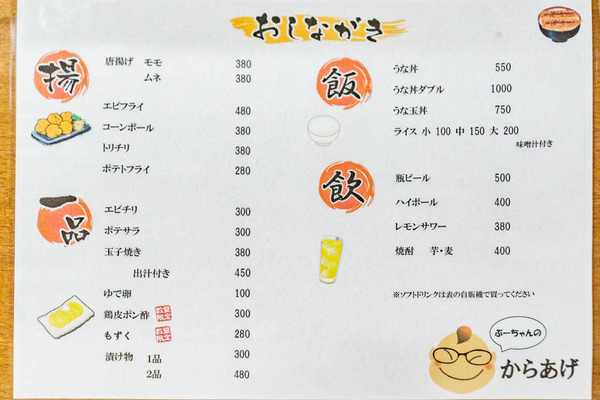 おしながき
揚
唐揚げ モモ 380
ムネ 380
エビフライ 480
コーンボール 380
トリチリ 380
ポテトフライ 280
一品
エビチリ 300
ポテサラ 300
玉子焼き 380
出汁付き 450
ゆで卵 100
鶏皮ポン酢 300
もずく 280
漬け物 1品 300
2品 480
飯
うな丼 550
うな丼ダブル 1000
うな玉丼 750
ライス 小 100 中 150 大 200
味噌汁付き
飲
瓶ビール 500
ハイボール 400
レモンサワー 380
焼酎 芋・麦 400
※ソフトドリンクは表の自販機で買ってください
ぶーちゃんの
からあげ